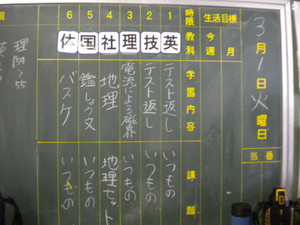 3月1日火曜日
当番
生活目標
今週 月
時限 1 2 3 4 5 6
教科 英 技 理 社 国 体
学習内容 テスト返し テスト返し 電流による磁界 地理 鑑しょう文 バスケ
課題 いつもの いつもの いつもの 地理セット いつもの いつもの